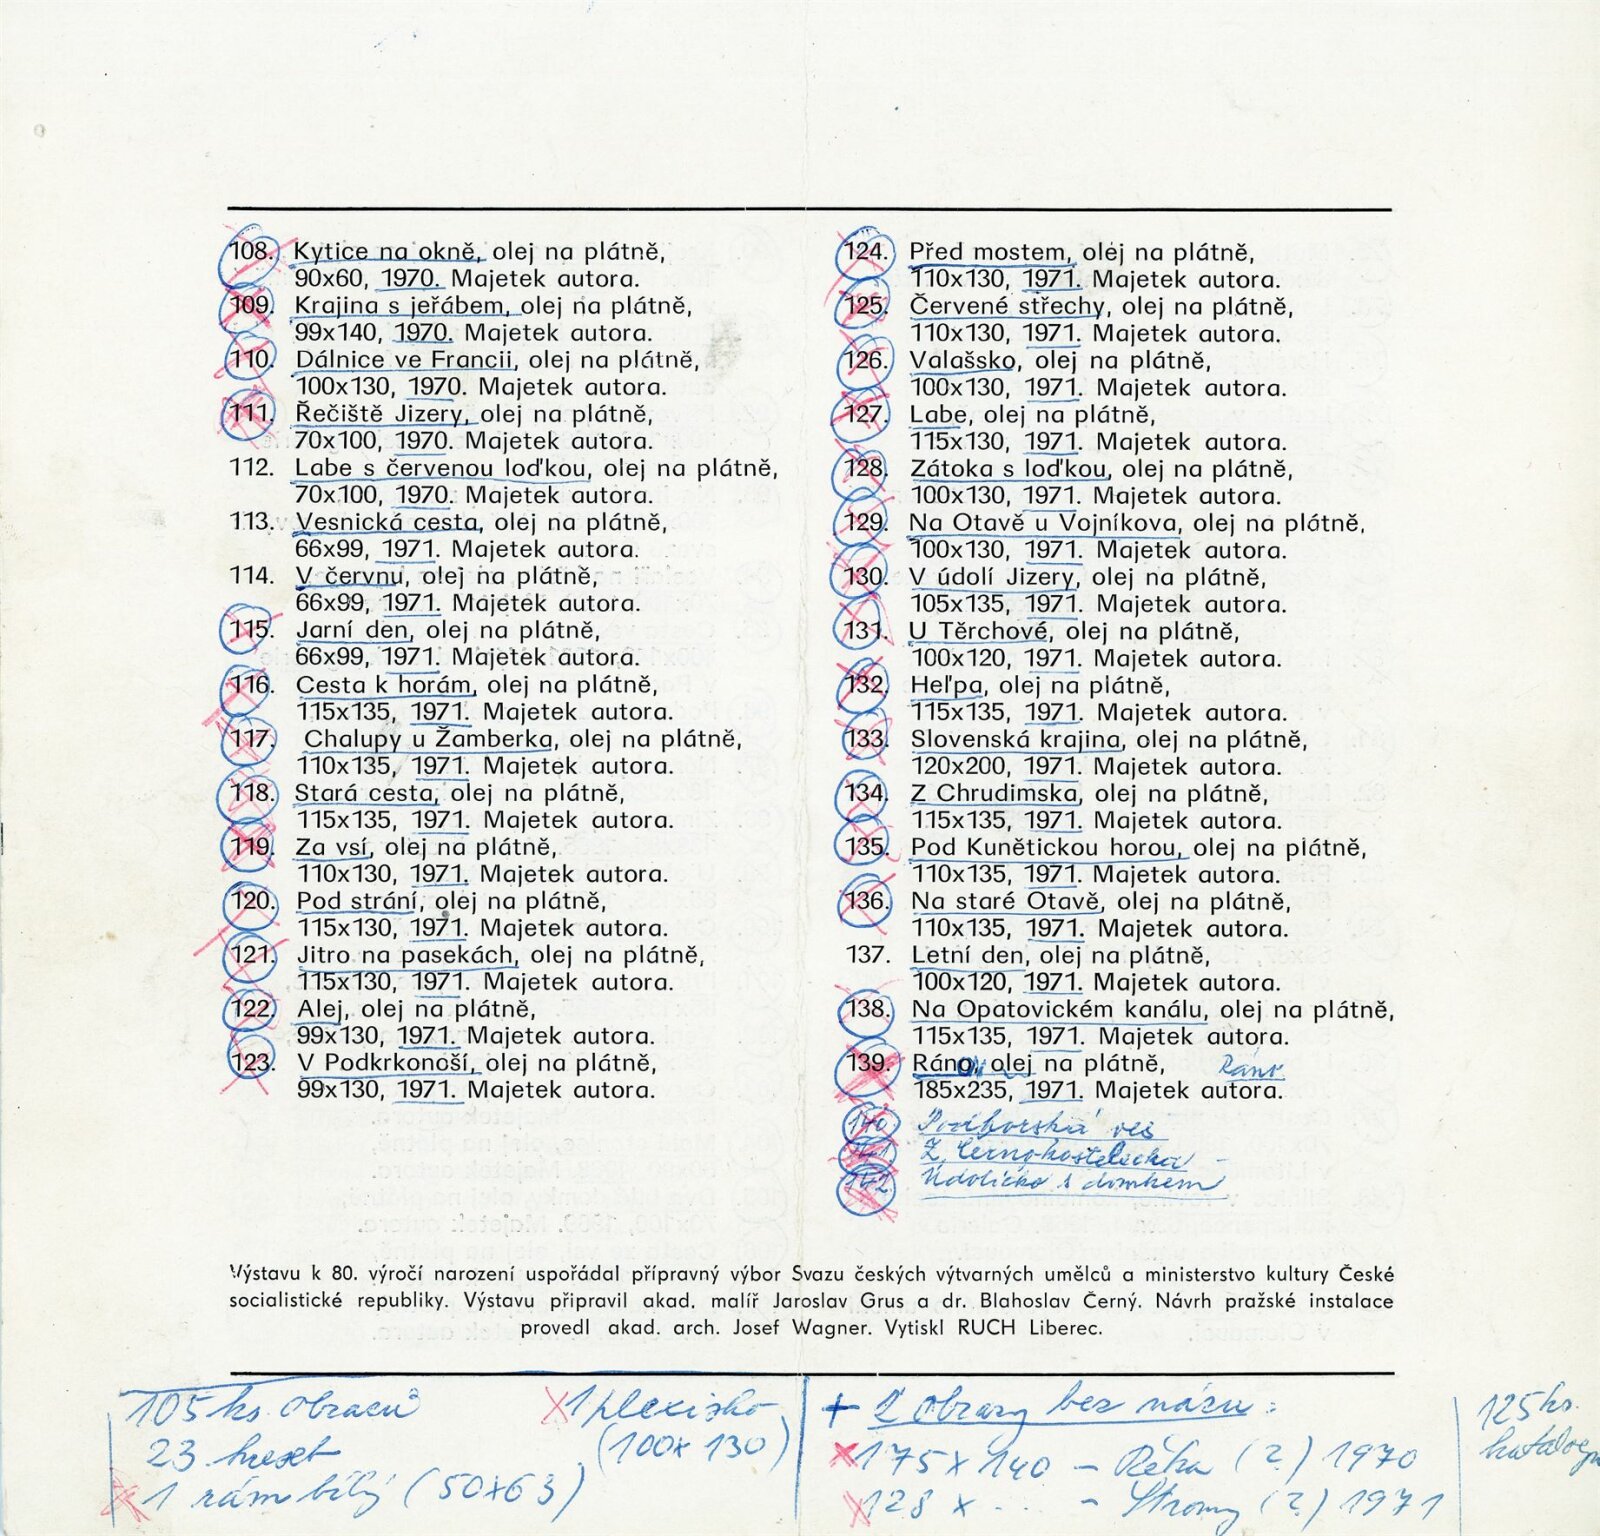 108. Kytice na okně, olej na plátně,
90x60, 1970. Majetek autora.
109. Krajina s jeřábem, olej na plátně,
99x140, 1970. Majetek autora.
110. Dálnice ve Francii, olej na plátně,
100x130, 1970. Majetek autora.
111. Řečiště Jizery, olej na plátně,
70x100, 1970. Majetek autora.
112. Labe s červenou loďkou, olej na plátně,
70x100, 1970. Majetek autora.
113. Vesnická cesta, olej na plátně,
66x99, 1971. Majetek autora.
114. V červnu, olej na plátně,
66x99, 1971. Majetek autora.
115. Jarní den, olej na plátně,
66x99, 1971. Majetek autora.
116. Cesta k horám, olej na plátně,
115x135, 1971. Majetek autora.
117. Chalupy u Žamberka, olej na plátně,
110x135, 1971. Majetek autora.
118. Stará cesta, olej na plátně,
115x135, 1971. Majetek autora.
119. Za vsí, olej na plátně,
110x130, 1971. Majetek autora.
120. Pod strání, olej na plátně,
115x130, 1971. Majetek autora.
121. Jitro na pasekách, olej na plátně,
115x130, 1971. Majetek autora.
122. Alej, olej na plátně,
99x130, 1971. Majetek autora.
123. V Podkrkonoší, olej na plátně,
99x130, 1971. Majetek autora.
124. Před mostem, olej na plátně,
110x130, 1971. Majetek autora.
125. Červené střechy, olej na plátně,
110x130, 1971. Majetek autora.
126. Valašsko, olej na plátně,
100x130, 1971. Majetek autora.
127. Labe, olej na plátně,
115x130, 1971. Majetek autora.
128. Zátoka s loďkou, olej na plátně,
100x130, 1971. Majetek autora.
129. Na Otavě u Vojníkova, olej na plátně,
100x130, 1971. Majetek autora.
130. V údolí Jizery, olej na plátně,
105x135, 1971. Majetek autora.
131. U Těrchové, olej na plátně,
100x120, 1971. Majetek autora.
132. Heľpa, olej na plátně,
115x135, 1971. Majetek autora.
133. Slovenská krajina, olej na plátně,
120x200, 1971. Majetek autora.
134. Z Chrudimska, olej na plátně,
115x135, 1971. Majetek autora.
135. Pod Kunětickou horou, olej na plátně,
110x135, 1971. Majetek autora.
136. Na staré Otavě, olej na plátně,
110x135, 1971. Majetek autora.
137. Letní den, olej na plátně,
100x120, 1971. Majetek autora.
138. Na Opatovickém kanálu, olej na plátně,
115x135, 1971. Majetek autora.
139. Ráno, olej na plátně, Ráno
185x235, 1971. Majetek autora.
140. Podhorská ves
141. Z Černokostelecka -
142. Údolíčko s domkem
Výstavu k 80. výročí narození uspořádal přípravný výbor Svazu českých výtvarných umělců a ministerstvo kultury České
socialistické republiky. Výstavu připravil akad. malíř Jaroslav Grus a dr. Blahoslav Černý. Návrh pražské instalace
provedl akad. arch. Josef Wagner. Vytiskl RUCH Liberec.
105 ks. obrazů
23 kreseb
1 rám bílý (50x63)
1 plexisklo
(100x130)
+ 2 obrazy bez názvu:
175x140 - Řeka (?) 1970
128 x ... - Stromy (?) 1971
125 ks.
katalogů